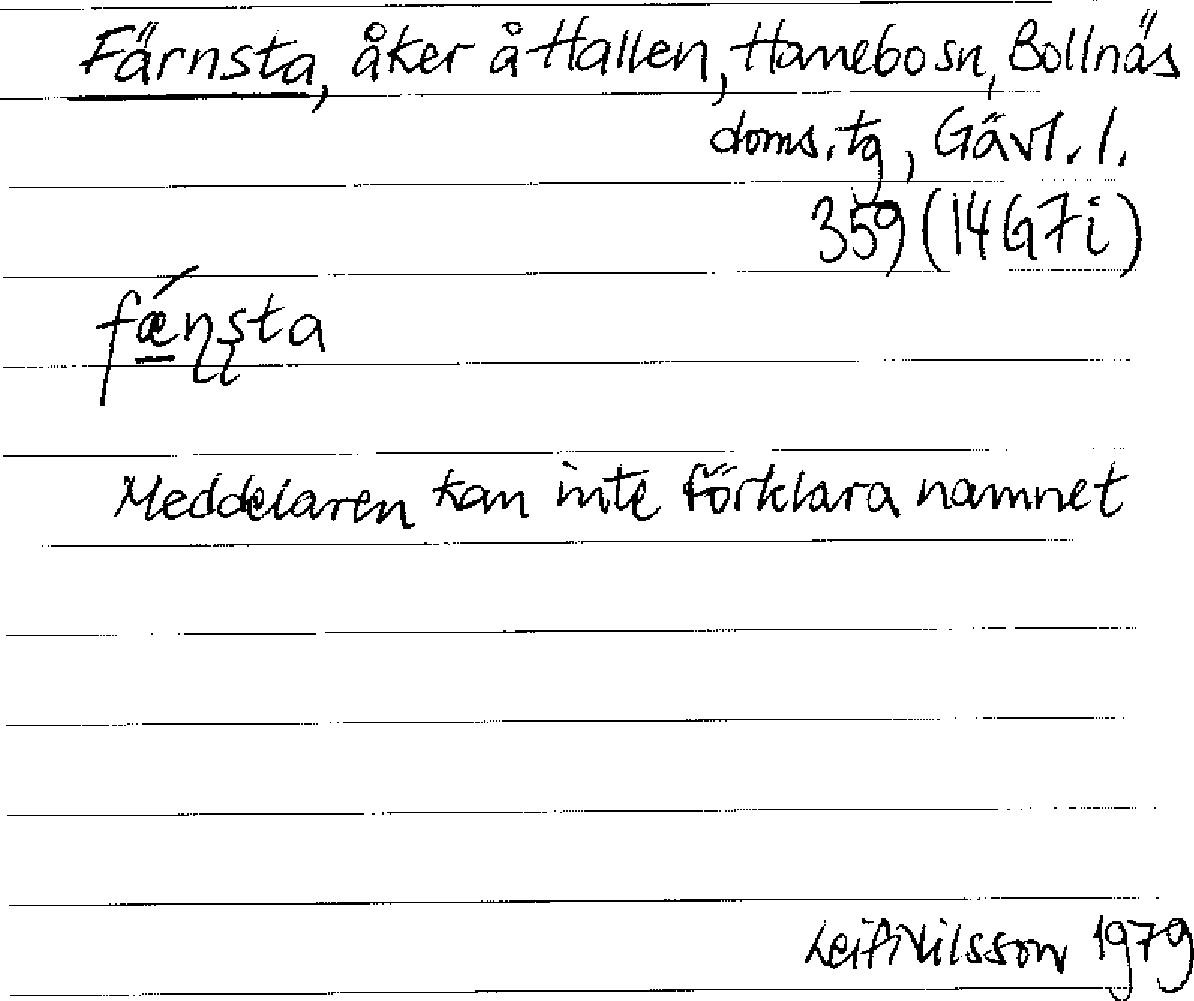 Färnsta, åker å Hallen, Hanebo sn, Bollnäs
doms.tg, Gävl. l.
359 (14G7i)
fǽɳʂta
Meddelaren kan inte förklara namnet
Leif Nilsson 1979